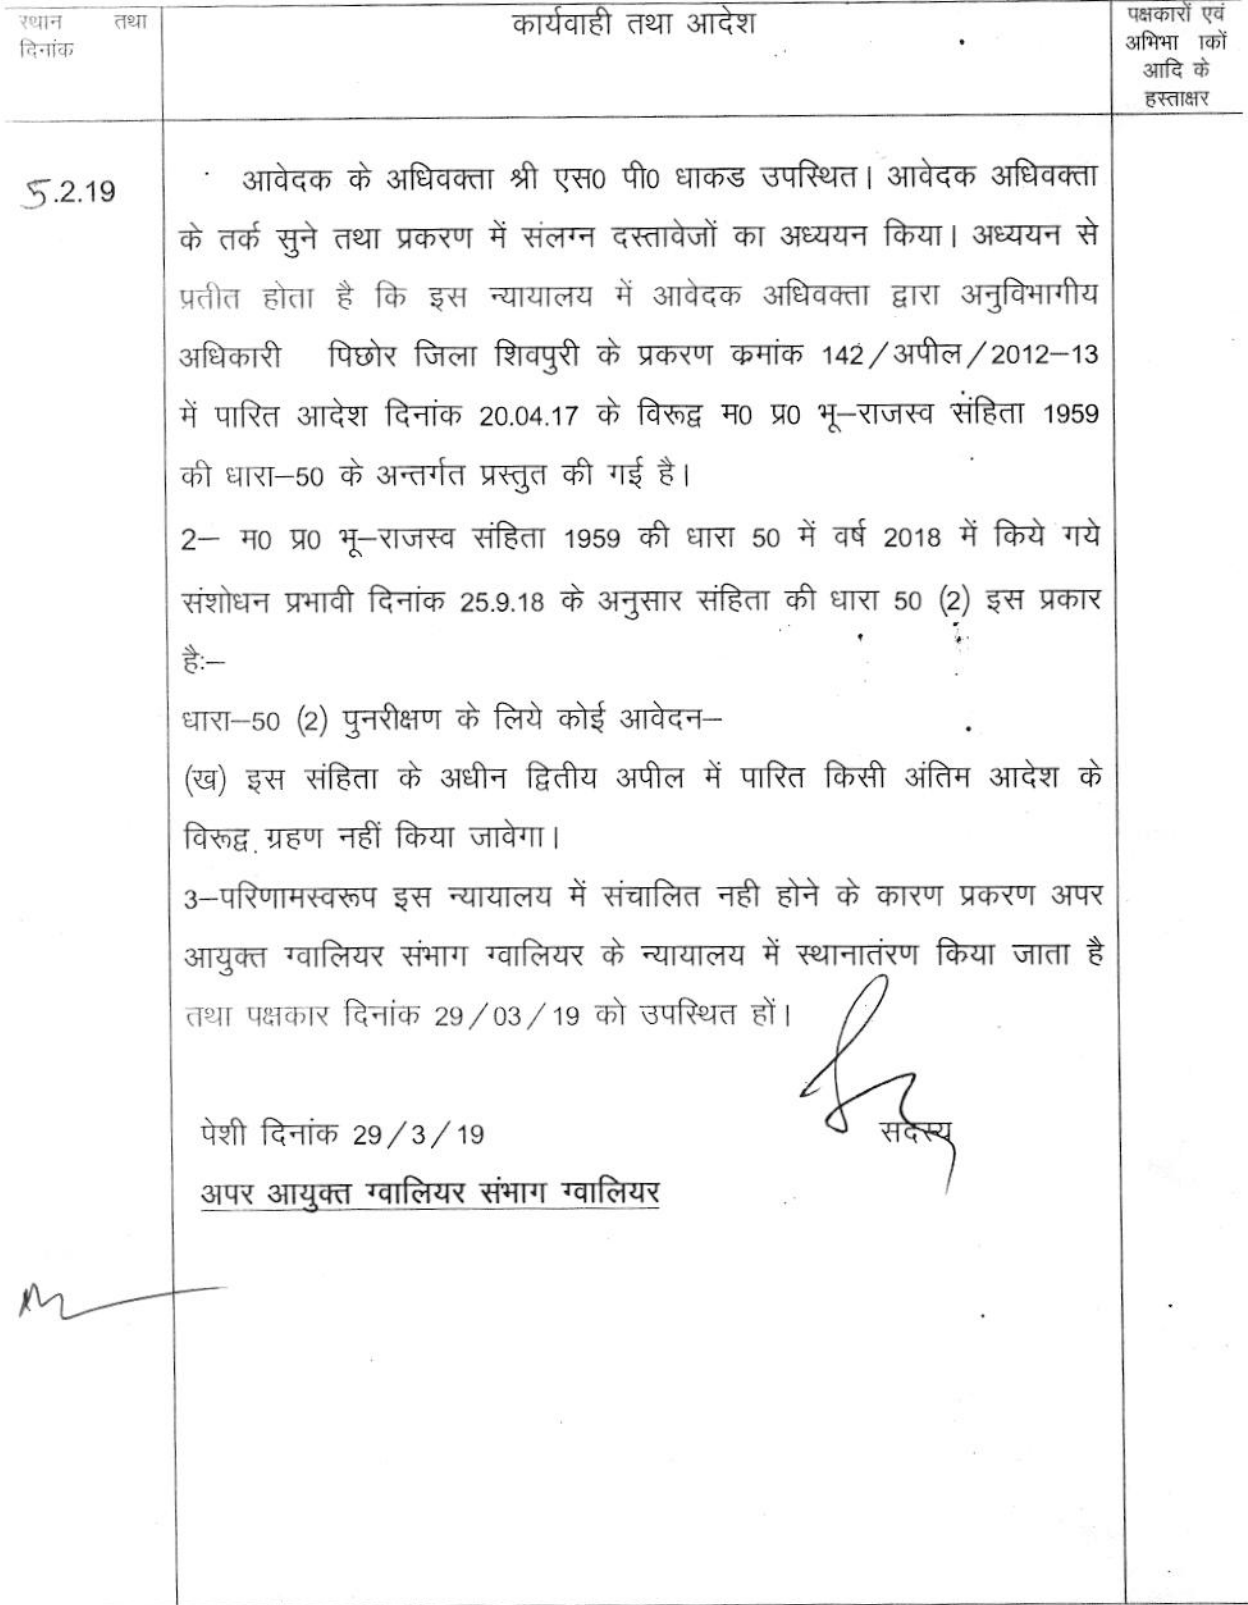 स्थान तथा
दिनांक
कार्यवाही तथा आदेश
पक्षकारों एवं
अभिभा कों
आदि के
हस्ताक्षर
5.2.19
आवेदक के अधिवक्ता श्री एस0 पी0 धाकड उपस्थित। आवेदक अधिवक्ता
के तर्क सुने तथा प्रकरण में संलग्न दस्तावेजों का अध्ययन किया। अध्ययन से
प्रतीत होता है कि इस न्यायालय में आवेदक अधिवक्ता द्वारा अनुविभागीय
अधिकारी पिछोर जिला शिवपुरी के प्रकरण क्रमांक 142/अपील/2012–13
में पारित आदेश दिनांक 20.04.17 के विरूद्व म0 प्र0 भू–राजस्व संहिता 1959
की धारा–50 के अन्तर्गत प्रस्तुत की गई है।
2– म0 प्र0 भू–राजस्व संहिता 1959 की धारा 50 में वर्ष 2018 में किये गये
संशोधन प्रभावी दिनांक 25.9.18 के अनुसार संहिता की धारा 50 (2) इस प्रकार
है:–
धारा–50 (2) पुनरीक्षण के लिये कोई आवेदन–
(ख) इस संहिता के अधीन द्वितीय अपील में पारित किसी अंतिम आदेश के
विरूद्व ग्रहण नहीं किया जावेगा।
3–परिणामस्वरूप इस न्यायालय में संचालित नही होने के कारण प्रकरण अपर
आयुक्त ग्वालियर संभाग ग्वालियर के न्यायालय में स्थानातंरण किया जाता है
तथा पक्षकार दिनांक 29/03/19 को उपस्थित हों।
सदस्य
पेशी दिनांक 29/3/19
अपर आयुक्त ग्वालियर संभाग ग्वालियर